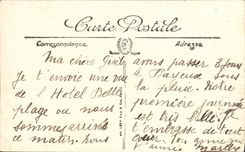 Carte Postale
Correspondance
Adresse
Ma chère
je t'envoie une vue
de l'Hotel Belle
plage ou nous
sommes arrivés
ce matin. nous
avons passer 3 jours
a Bayeux sous
la pluie. Notre
première journée
est très belle. Je
t'embrasse de tout
cœur. Ton